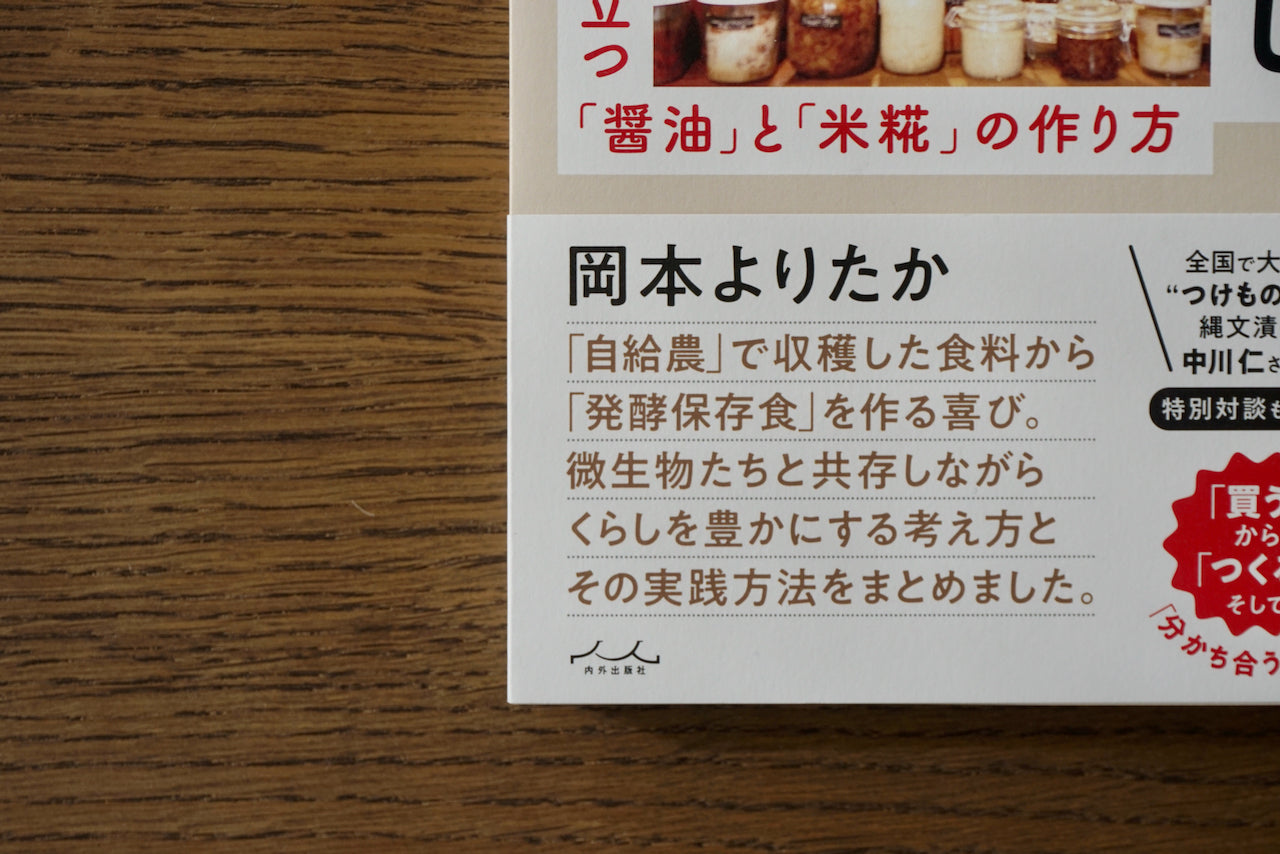 立つ
「醤油」と「米糀」の作り方
岡本よりたか
「自給農」で収穫した食料から
「発酵保存食」を作る喜び。
微生物たちと共存しながら
くらしを豊かにする考え方と
その実践方法をまとめました。
内外出版社
全国で大
“つけもの
縄文漬
中川仁さ
特別対談も
「買う
から
「つくる
そして
「分かち合う